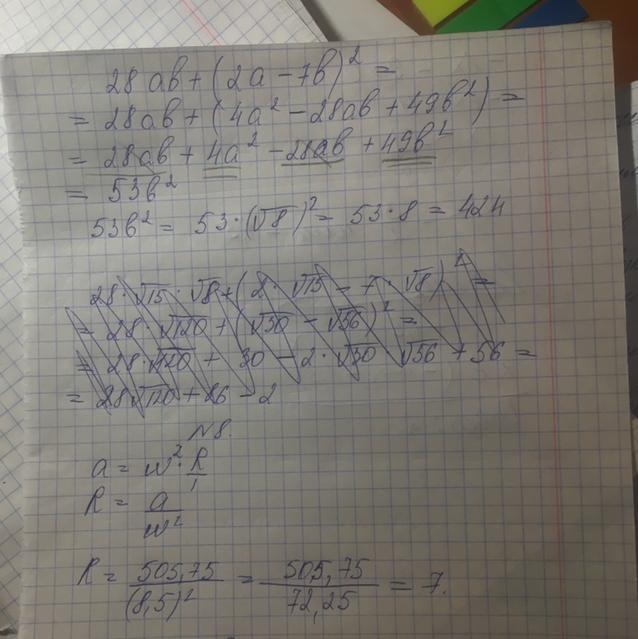 28ab + (2a − 7b)² =
= 28ab + (4a² − 28ab + 49b²) =
= 28ab + 4a² − 28ab + 49b²
= 53b²
53b² = 53·(√8)² = 53·8 = 424
28·√15·√8 + (2·√15 − 7·√8)² =
= 28·√120 + (√30 − √56)² =
= 28·√120 + 30 − 2·√30 √56 + 56 =
= 28√120 + 86 − 2
N8.
a = w²·R/1
R = a/w²
R = 505,75/(8,5)² = 505,75/72,25 = 7.